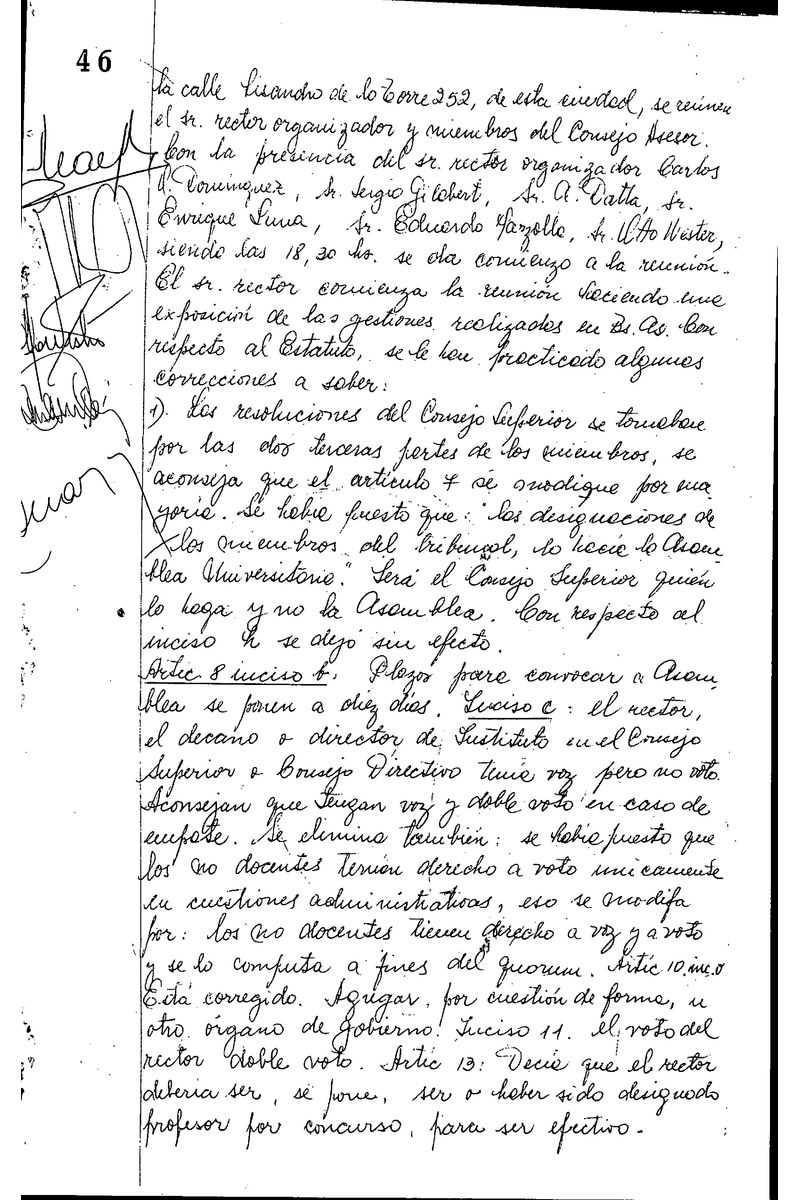 46
la calle Lisandro de la Torre 252, de esta ciudad, se reunen
el sr. rector organizador y miembros del Consejo Asesor.
Con la presencia del sr. rector organizador Carlos
A. Dominguez, Sr. Sergio Gilabert, Sr. A. Datta, sr.
Enrique Luna, Sr. Eduardo Marzolla, Sr. Otto Wester,
siendo las 18,30 hs. se da comienzo a la reunión.
El sr. rector comienza la reunión haciendo una
exposición de las gestiones realizadas en Bs. As. Con
respecto al Estatuto, se le han practicado algunas
correcciones a saber:
1). Las resoluciones del Consejo Superior se tomaban
por las dos terceras partes de los miembros, se
aconseja que el artículo 7 se modique por ma
yoría. Se había puesto que: "las designaciones de
los miembros del tribunal, lo hacía la Asam
blea Universitaria." Será el Consejo Superior quién
lo haga y no la Asamblea. Con respecto al
inciso h se dejó sin efecto.
Artic. 8 inciso b. Plazos para convocar a Asam
blea se ponen a diez días. Inciso c: el rector,
el decano o director de Instituto en el Consejo
Superior o Consejo Directivo tenía voz pero no voto.
Aconsejan que tengan voz y doble voto en caso de
empate. Se elimina también: se había puesto que
los no docentes tenían derecho a voto unicamente
en cuestiones administrativas, eso se modifa
por: los no docentes tienen derecho a voz y a voto
y se lo computa a fines del quorum. Artic 10. inc. o
Está corregido. Agregar, por cuestión de forma, u
otro órgano de gobierno. Inciso 11. el voto del
rector doble voto. Artic 13: Decía que el rector
debería ser, se pone, ser o haber sido designado
profesor por concurso, para ser efectivo.-